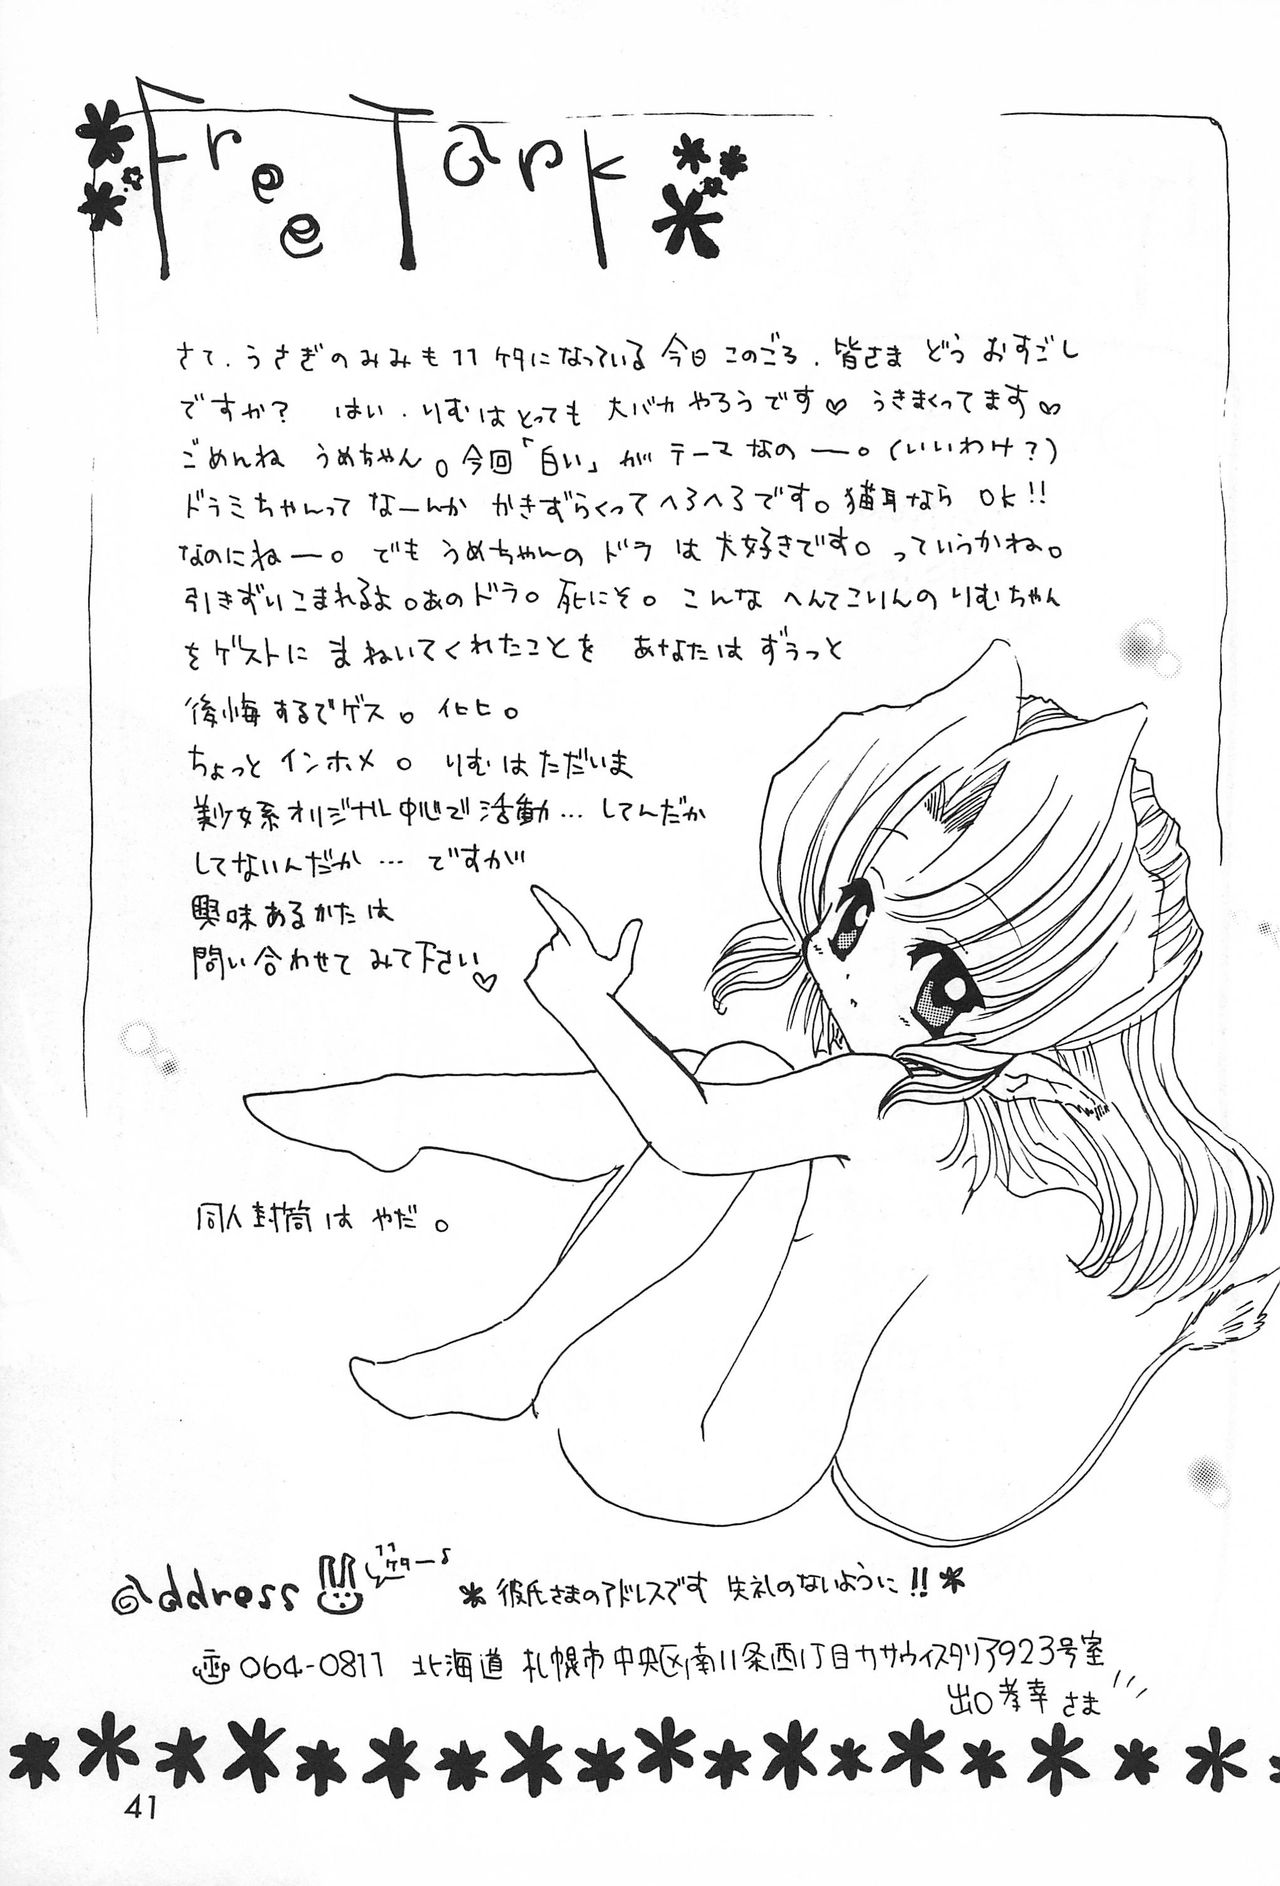 Free Tark
さて、うさぎのみみも11ケタになっている今日このごろ、皆さまどうおすごし
ですか? はい、りむはとっても大バカやろうです♡ うきまくってます♡
ごめんねうめちゃん。今回「白い」がテーマなのー。(いいわけ?)
ドラミちゃんってなーんかかきずらくってへろへろです。猫耳ならOK!!
なのにねー。でもうめちゃんのドラは大好きです。っていうかね。
引きずいこまれるよ。あのドラ。死にそ。こんなへんてこりんのりむちゃん
をゲストにまねいてくれたことをあなたはずぅっと
後悔するでゲス。イヒヒ。
ちょっとインホメ。りむはただいま
美少女系オリジナル中心で活動…してんだか
してないんだか…ですが
興味あるかたは
問い合わせてみて下さい♡
同人封筒はやだ。
@ddress
11ケター♪
*彼氏さまのアドレスです 失礼のないように!!*
〒064-0811 北海道札幌市中央区南11条西1丁目カサウィスタリア923号室
出口孝幸さま
41